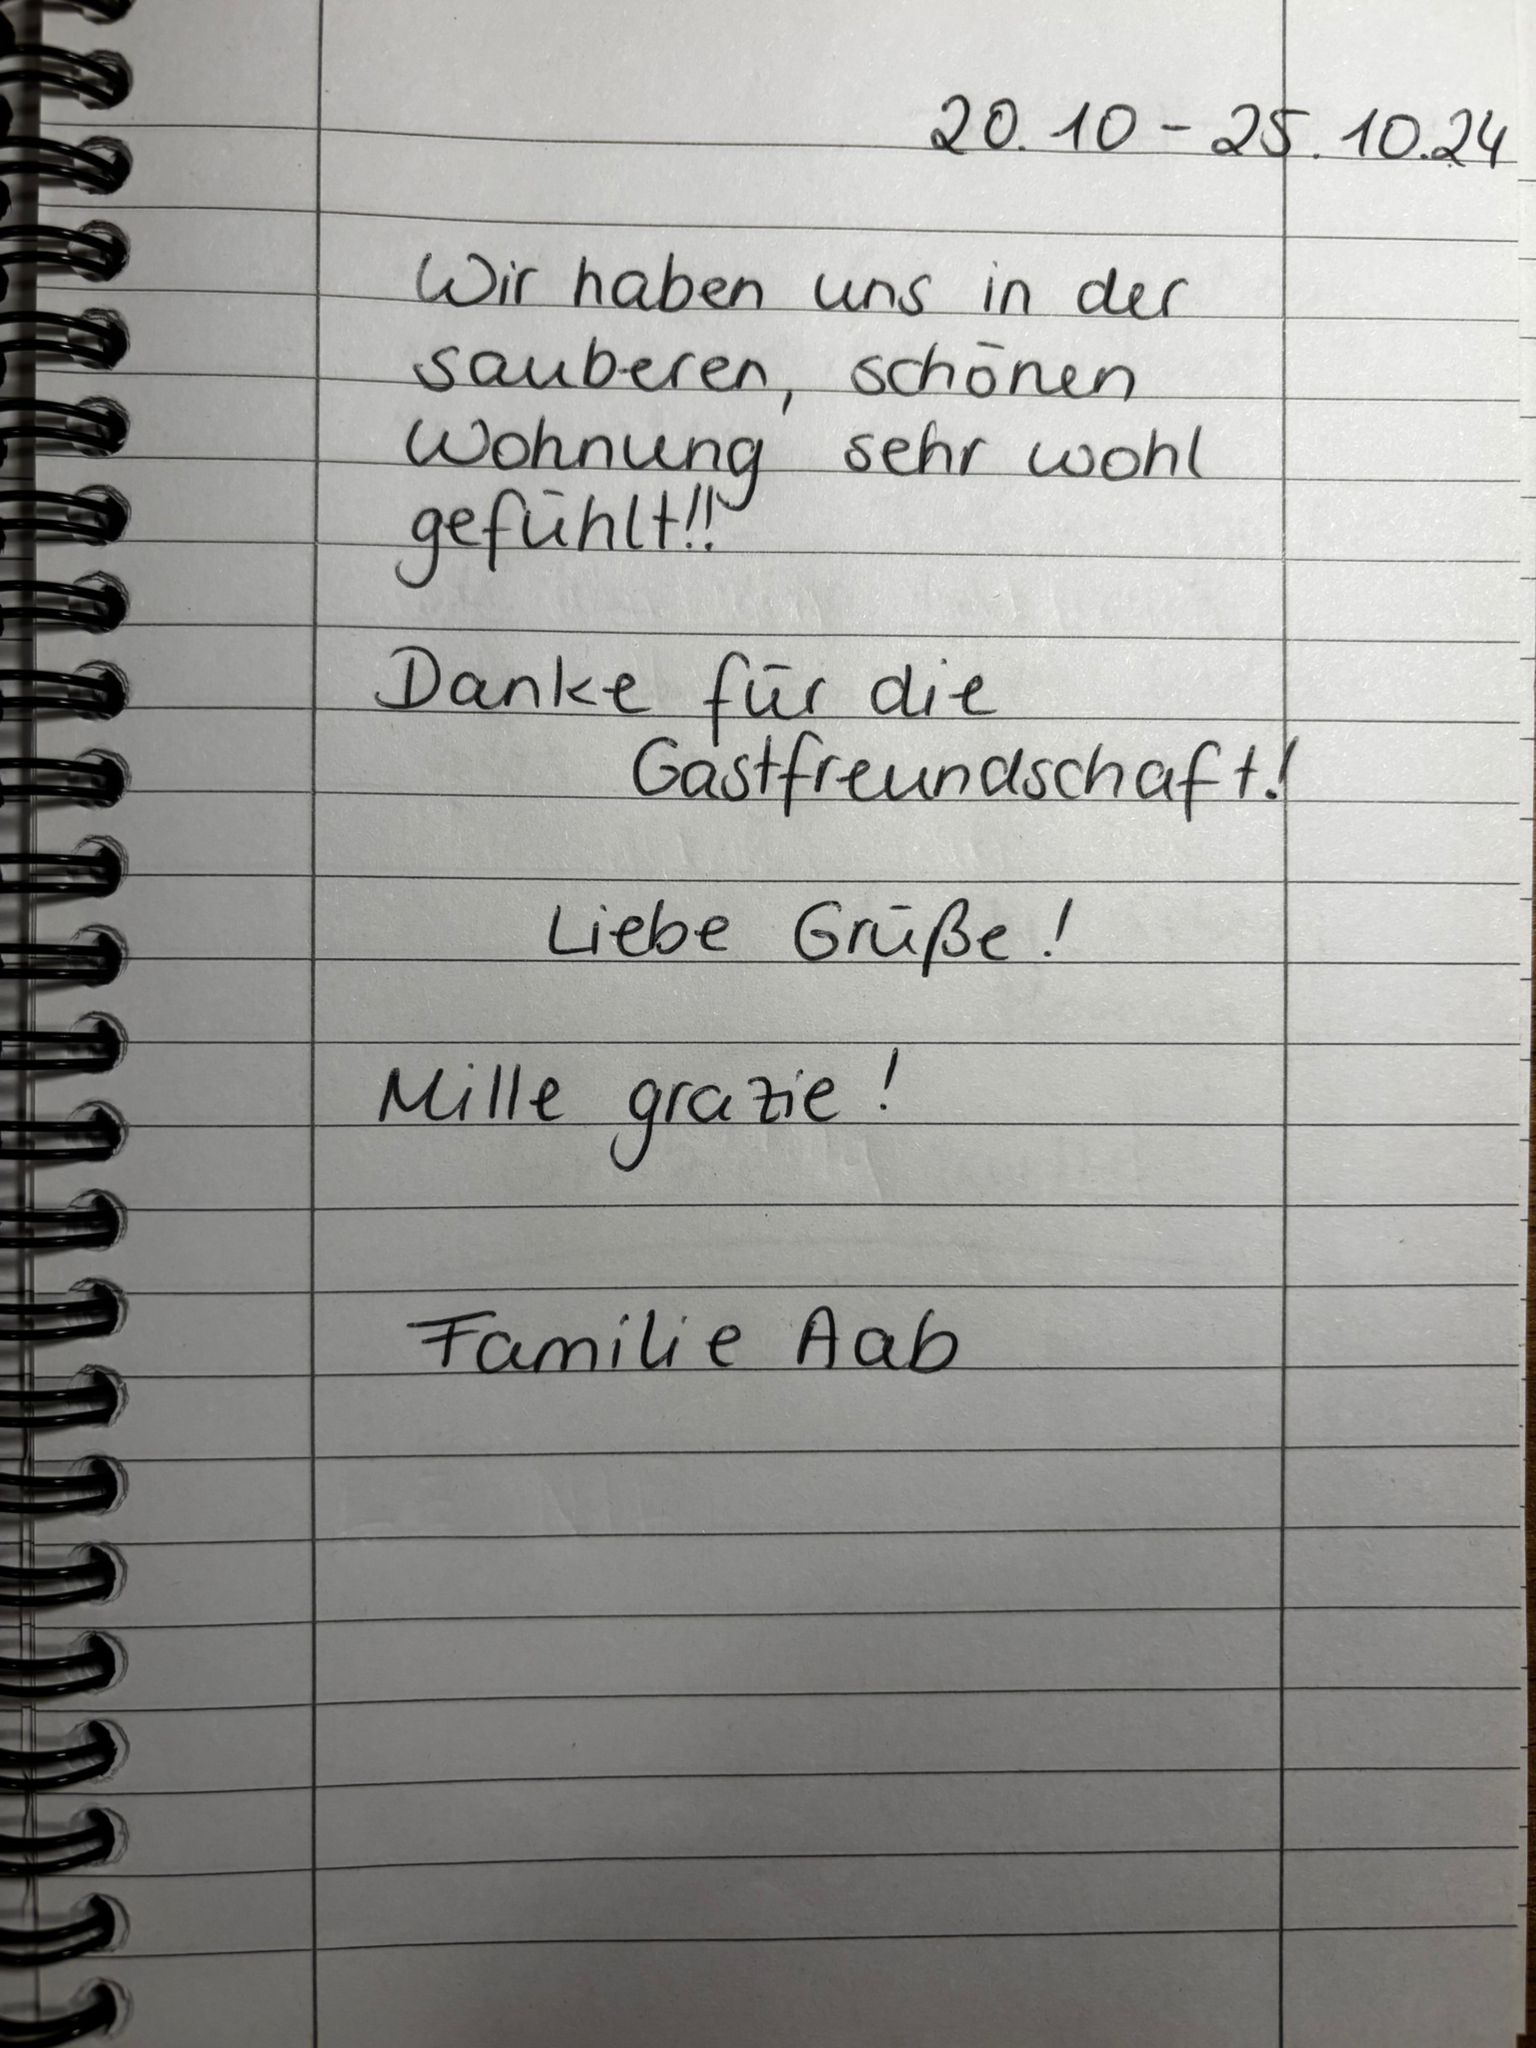 20.10 - 25.10.24
Wir haben uns in der
sauberen, schönen
Wohnung sehr wohl
gefühlt!!
Danke für die
Gastfreundschaft!
Liebe Grüße!
Mille grazie!
Familie Aab